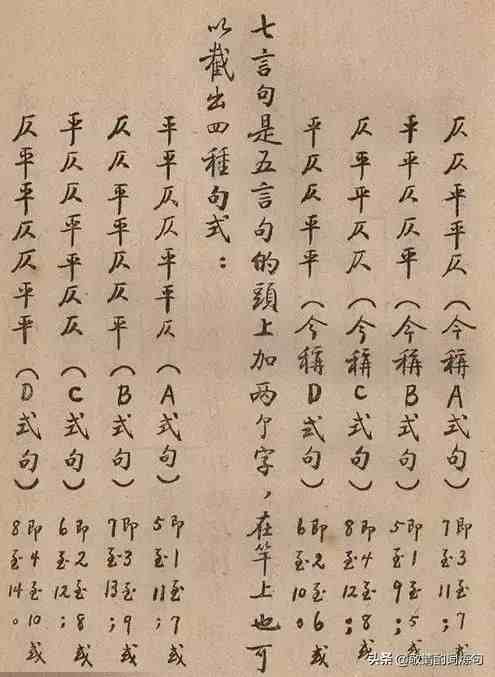 仄仄平平仄（今稱A式句）即3至7或7至11；
平平仄仄平（今稱B式句）即1至5或5至9；
仄平平仄仄（今稱C式句）即4至8或8至12；
平仄仄平平（今稱D式句）即2至6或6至10。
七言句是五言句的頭上加两个字，在竿上也可
以截出四種句式：
平平仄仄平平仄（A式句）即1至7或5至11；
仄仄平平仄仄平（B式句）即3至9或7至13；
平仄仄平平仄仄（C式句）即2至8或6至12；
仄平平仄仄平平（D式句）即4至10或8至14。